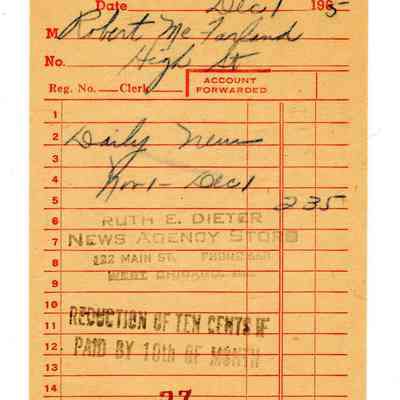 Date Dec 1 1965
M Robert McFarland
No. High St
Reg. No. Clerk ACCOUNT FORWARDED
1
2 Daily News
3
4 Nov 1 - Dec 1
5 2 35
6 RUTH E. DIETER
7 NEWS AGENCY STORE
8 122 MAIN ST. PHONE
9 WEST CHICAGO, ILL.
10 REDUCTION OF TEN CENTS IF
11
12 PAID BY 10th OF MONTH
13
14
27